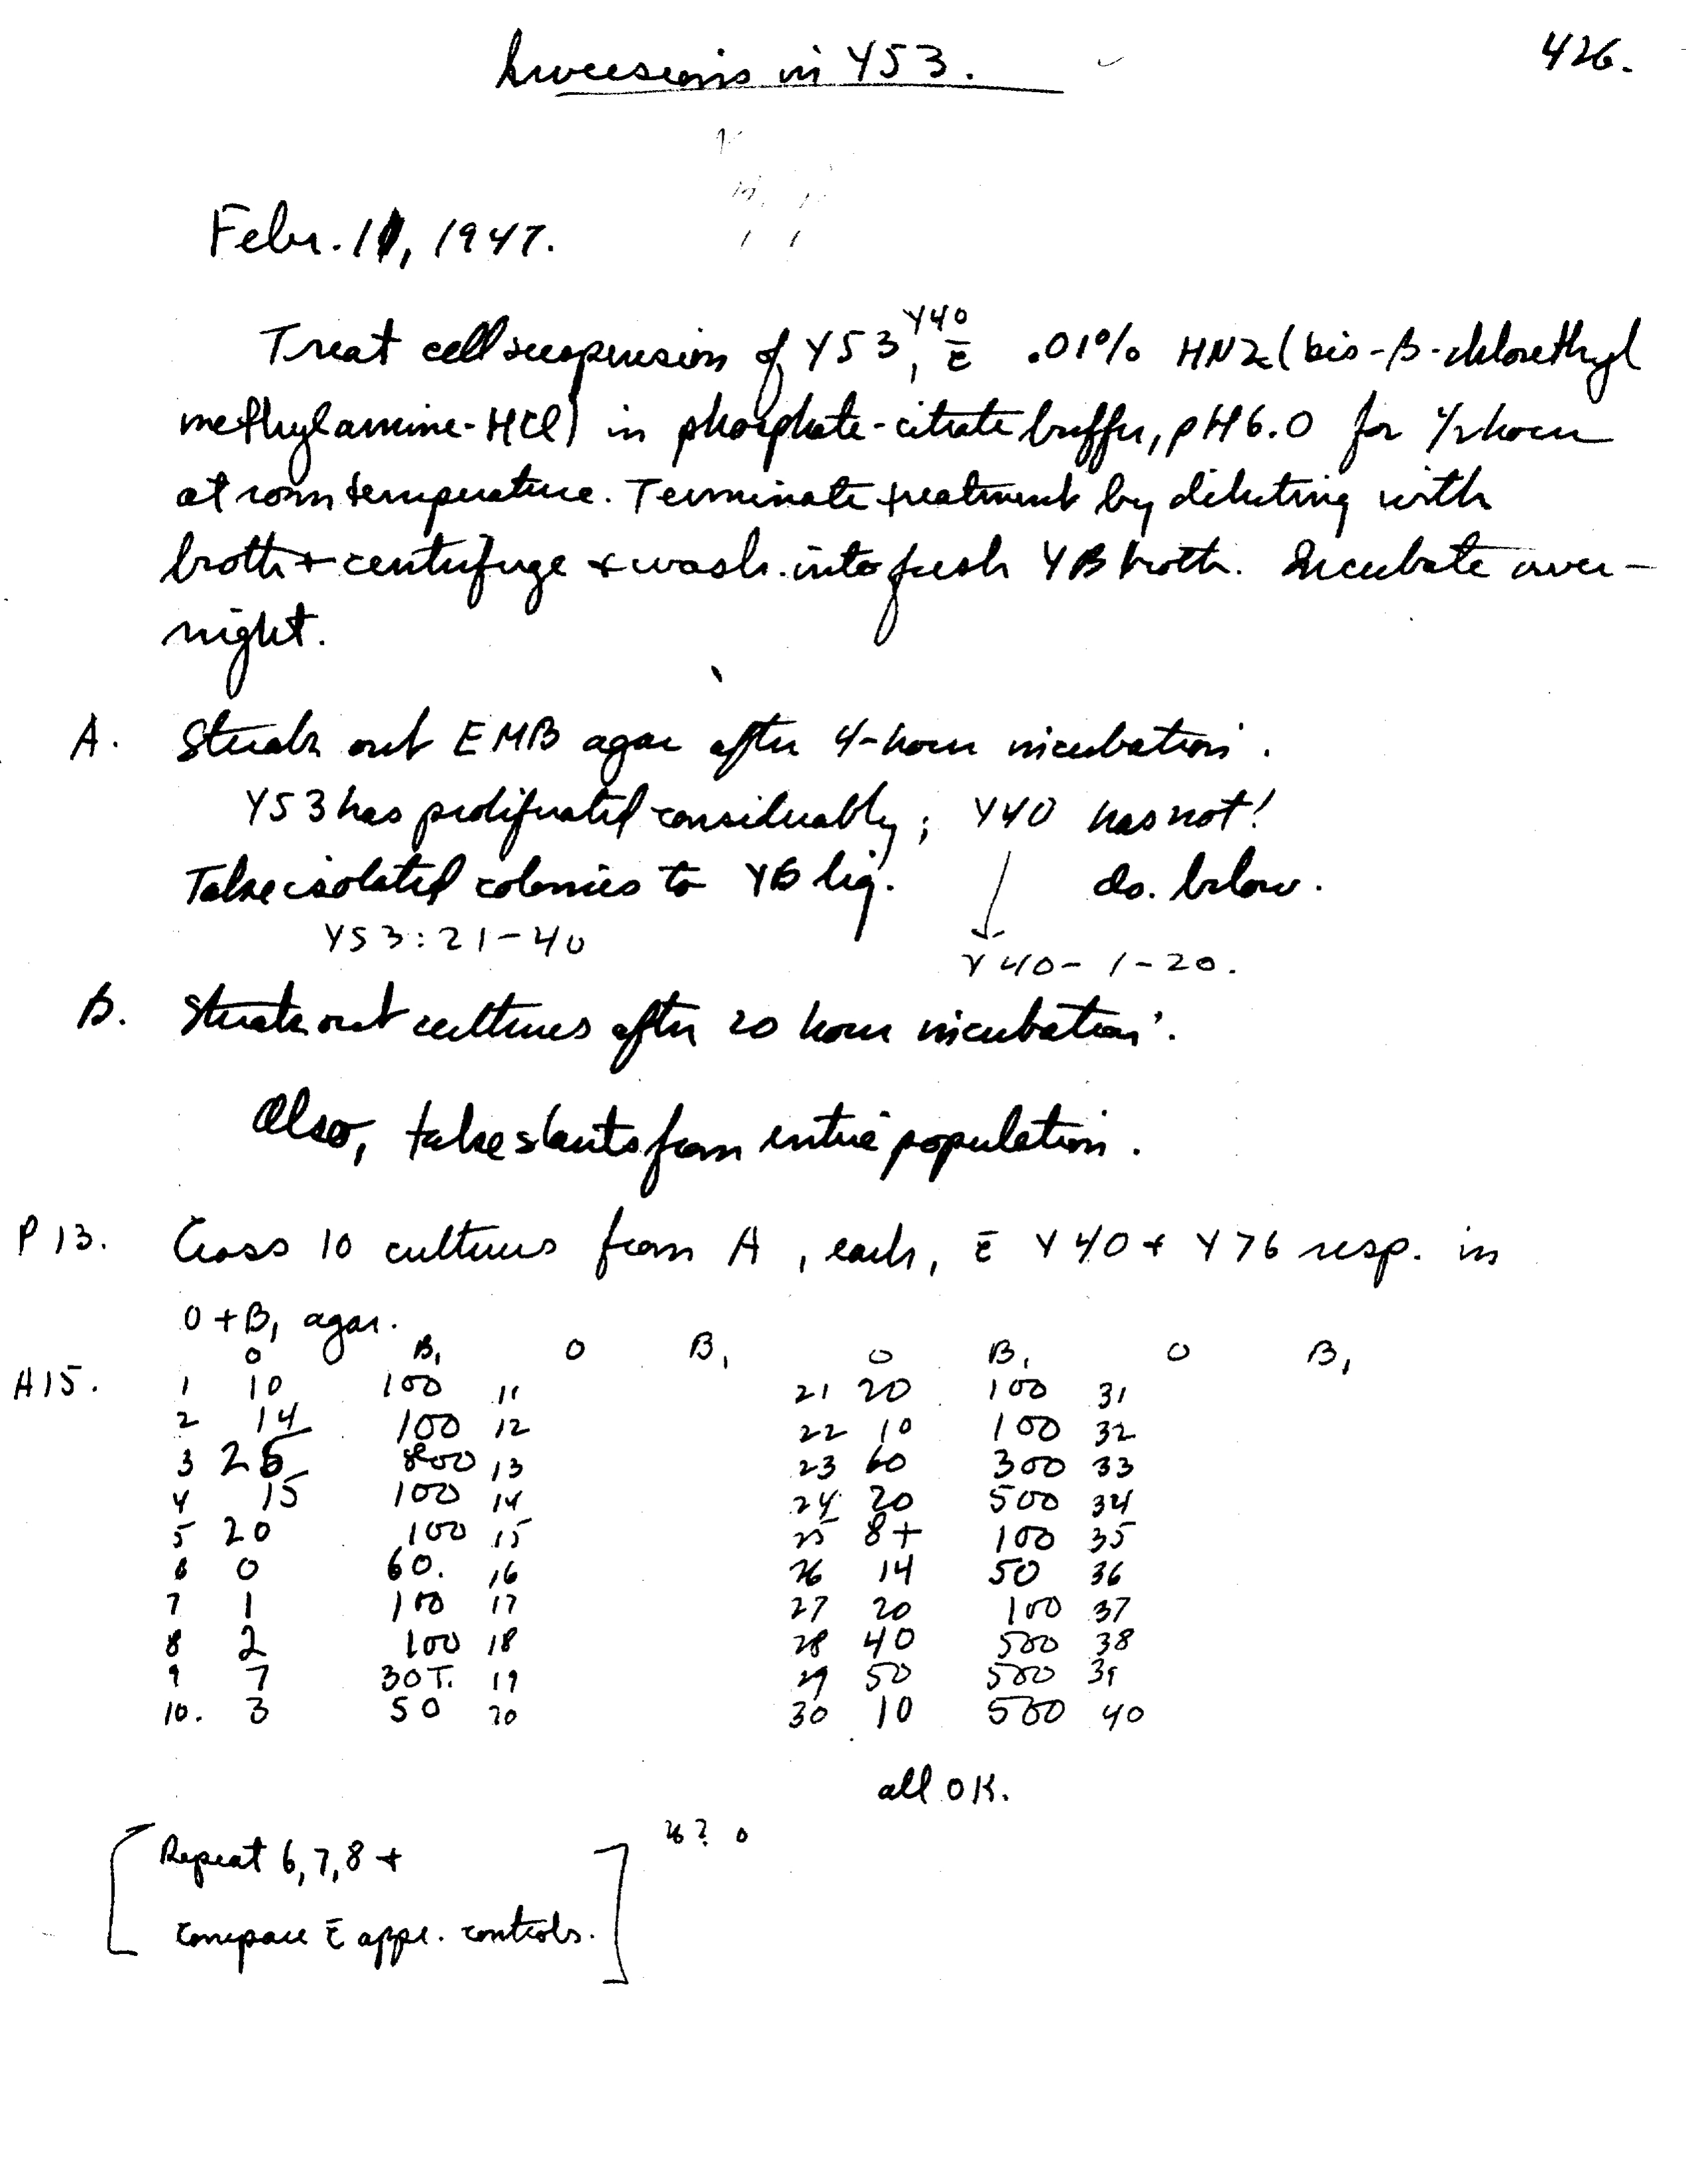 Inversions in Y53.
426.
Febr. 11, 1947.
Treat cell suspension of Y53, Y40 c̄ .01% HN2 (bis-β-chlorethyl
methylamine-HCl) in phosphate-citrate buffer, pH 6.0 for 1/2 hour
at room temperature. Terminate treatment by diluting with
broth + centrifuge + wash. into fresh YB broth. Incubate over-
night.
A. Streak out EMB agar after 4-hour incubation.
Y53 has proliferated considerably; Y40 has not!
Take isolated colonies to YB liq. do. below.
Y53: 21-40
Y40- 1-20.
B. Streak out cultures after 20 hour incubation.
Also, take slants from entire population.
P 13. Cross 10 cultures from A, each, c̄ Y40 + Y76 resp. in
O + B₁ agar.
O B₁ O B₁ O B₁ O B₁
A15. 1 10 100 11 21 20 100 31
2 14 100 12 22 10 100 32
3 25 800 13 23 60 300 33
4 15 100 14 24 20 500 34
5 20 100 15 25 8+ 100 35
6 0 60. 16 26 14 50 36
7 1 100 17 27 20 100 37
8 2 100 18 28 40 500 38
9 7 30T. 19 29 50 500 39
10. 3 50 20 30 10 500 40
all OK.
[Repeat 6, 7, 8 +
compare c̄ appr. controls.]